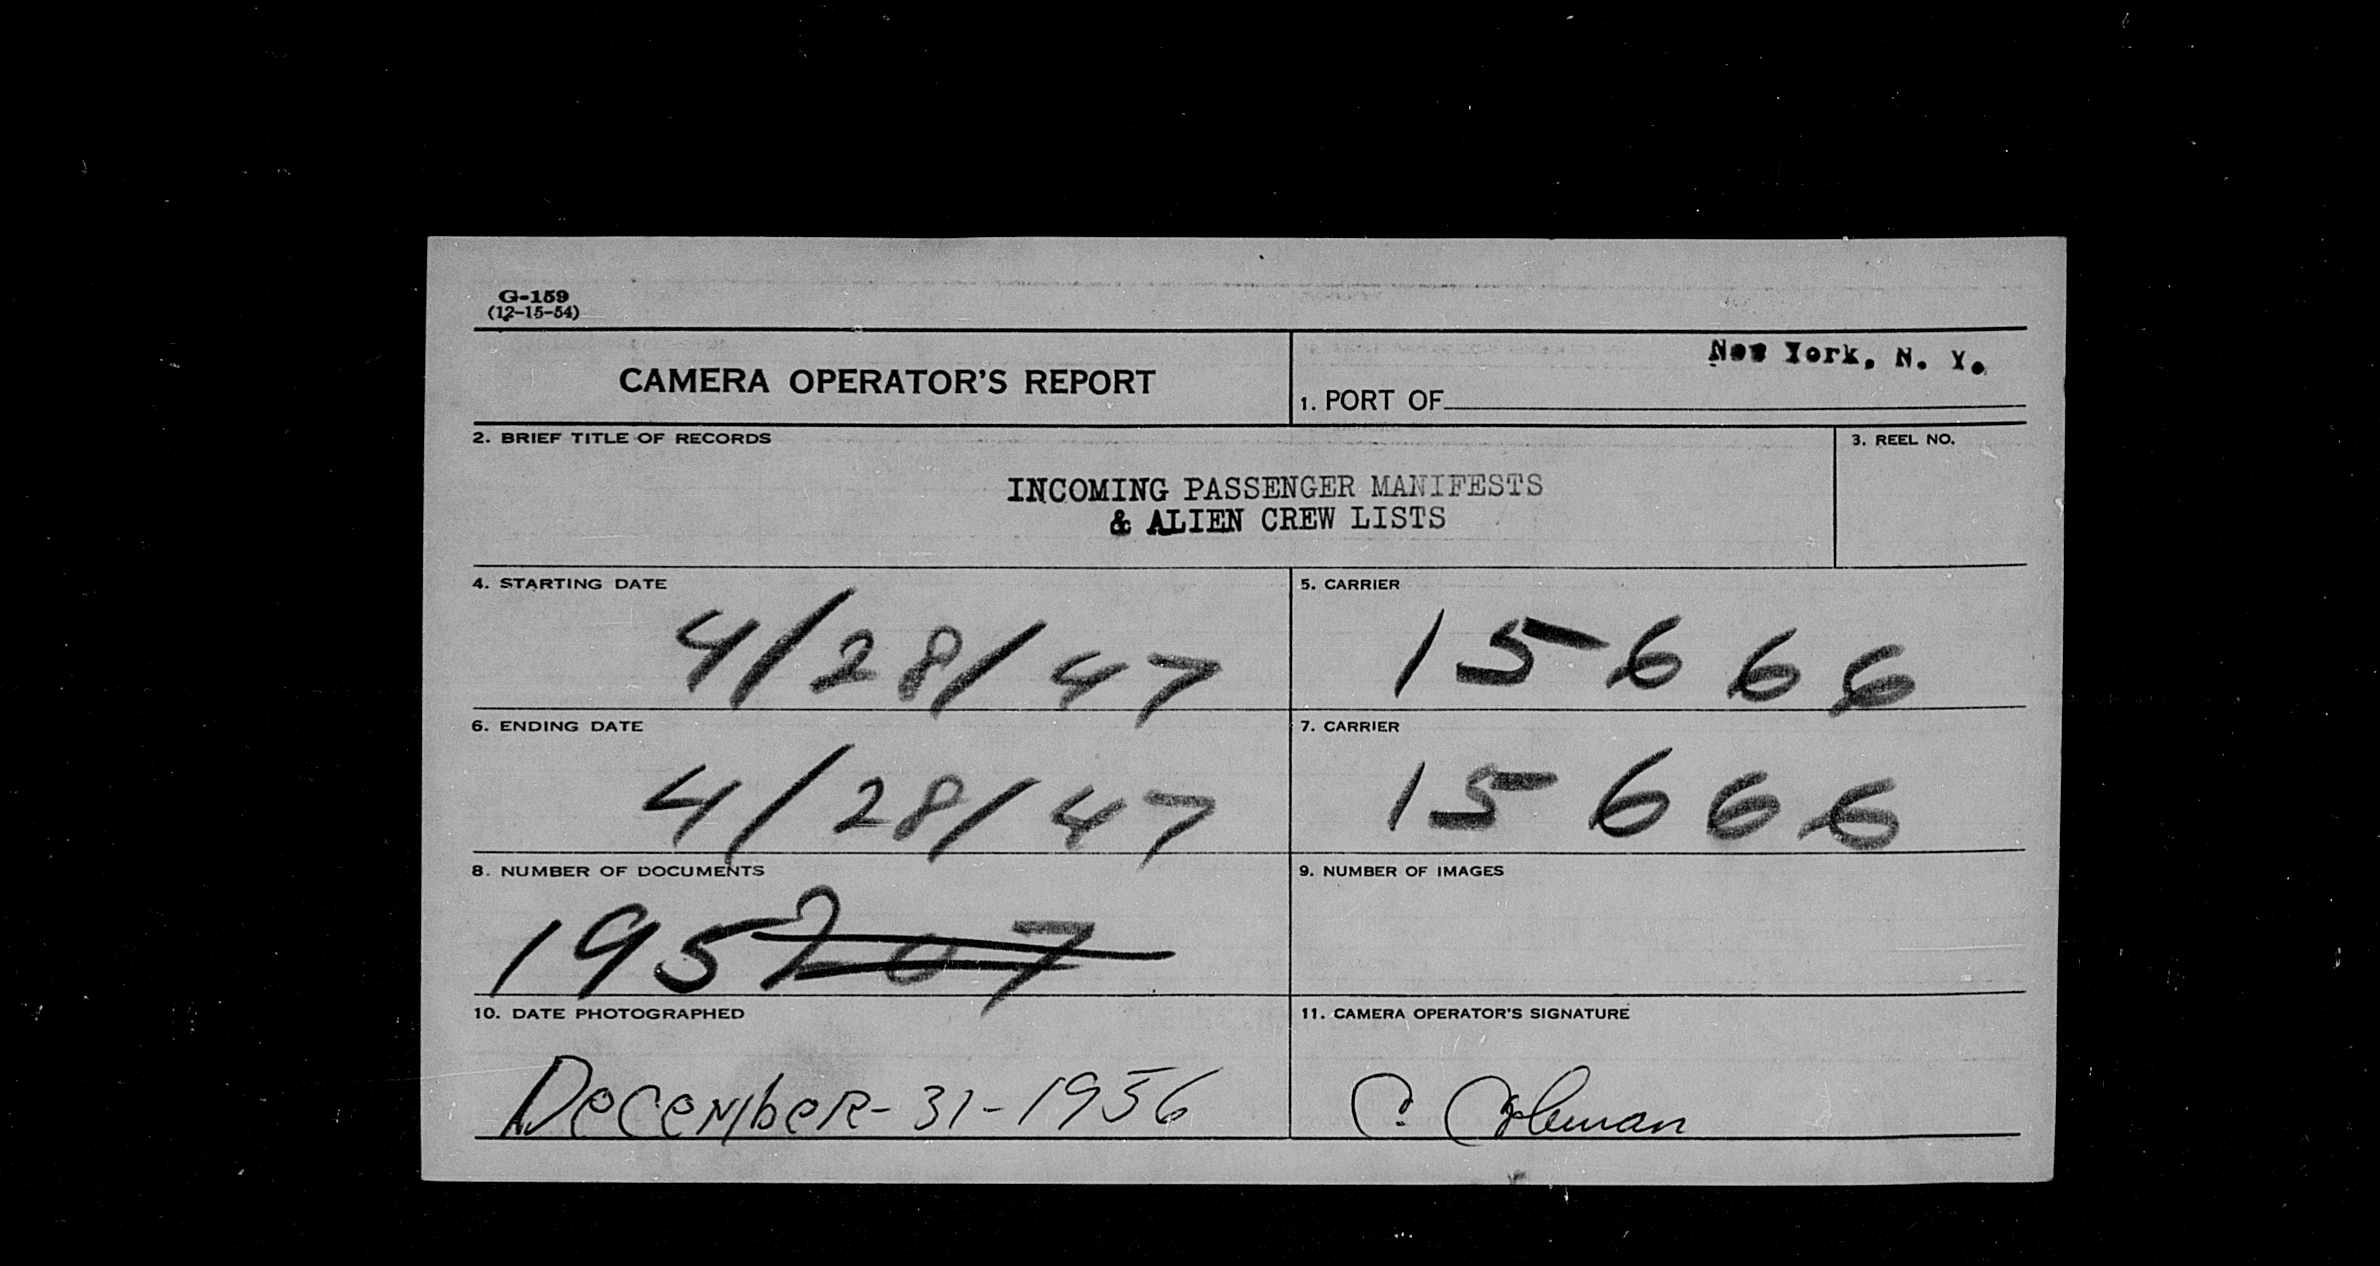 G-159
(12-15-54)
CAMERA OPERATOR'S REPORT
New York, N. Y.
1. PORT OF
2. BRIEF TITLE OF RECORDS
3. REEL NO.
INCOMING PASSENGER MANIFESTS
& ALIEN CREW LISTS
4. STARTING DATE
4/28/47
5. CARRIER
15666
6. ENDING DATE
4/28/47
7. CARRIER
15666
8. NUMBER OF DOCUMENTS
195 207
9. NUMBER OF IMAGES
10. DATE PHOTOGRAPHED
December-31-1956
11. CAMERA OPERATOR'S SIGNATURE
C. Coleman